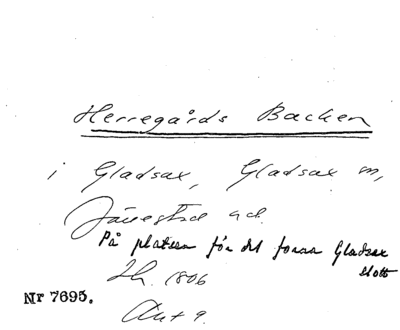 Herregårds Backen
i Gladsax, Gladsax sn,
Järrestad hd.
På platsen för det forna Gladsax
slott
Ih. 1806
Nr 7695.
Ant 9.